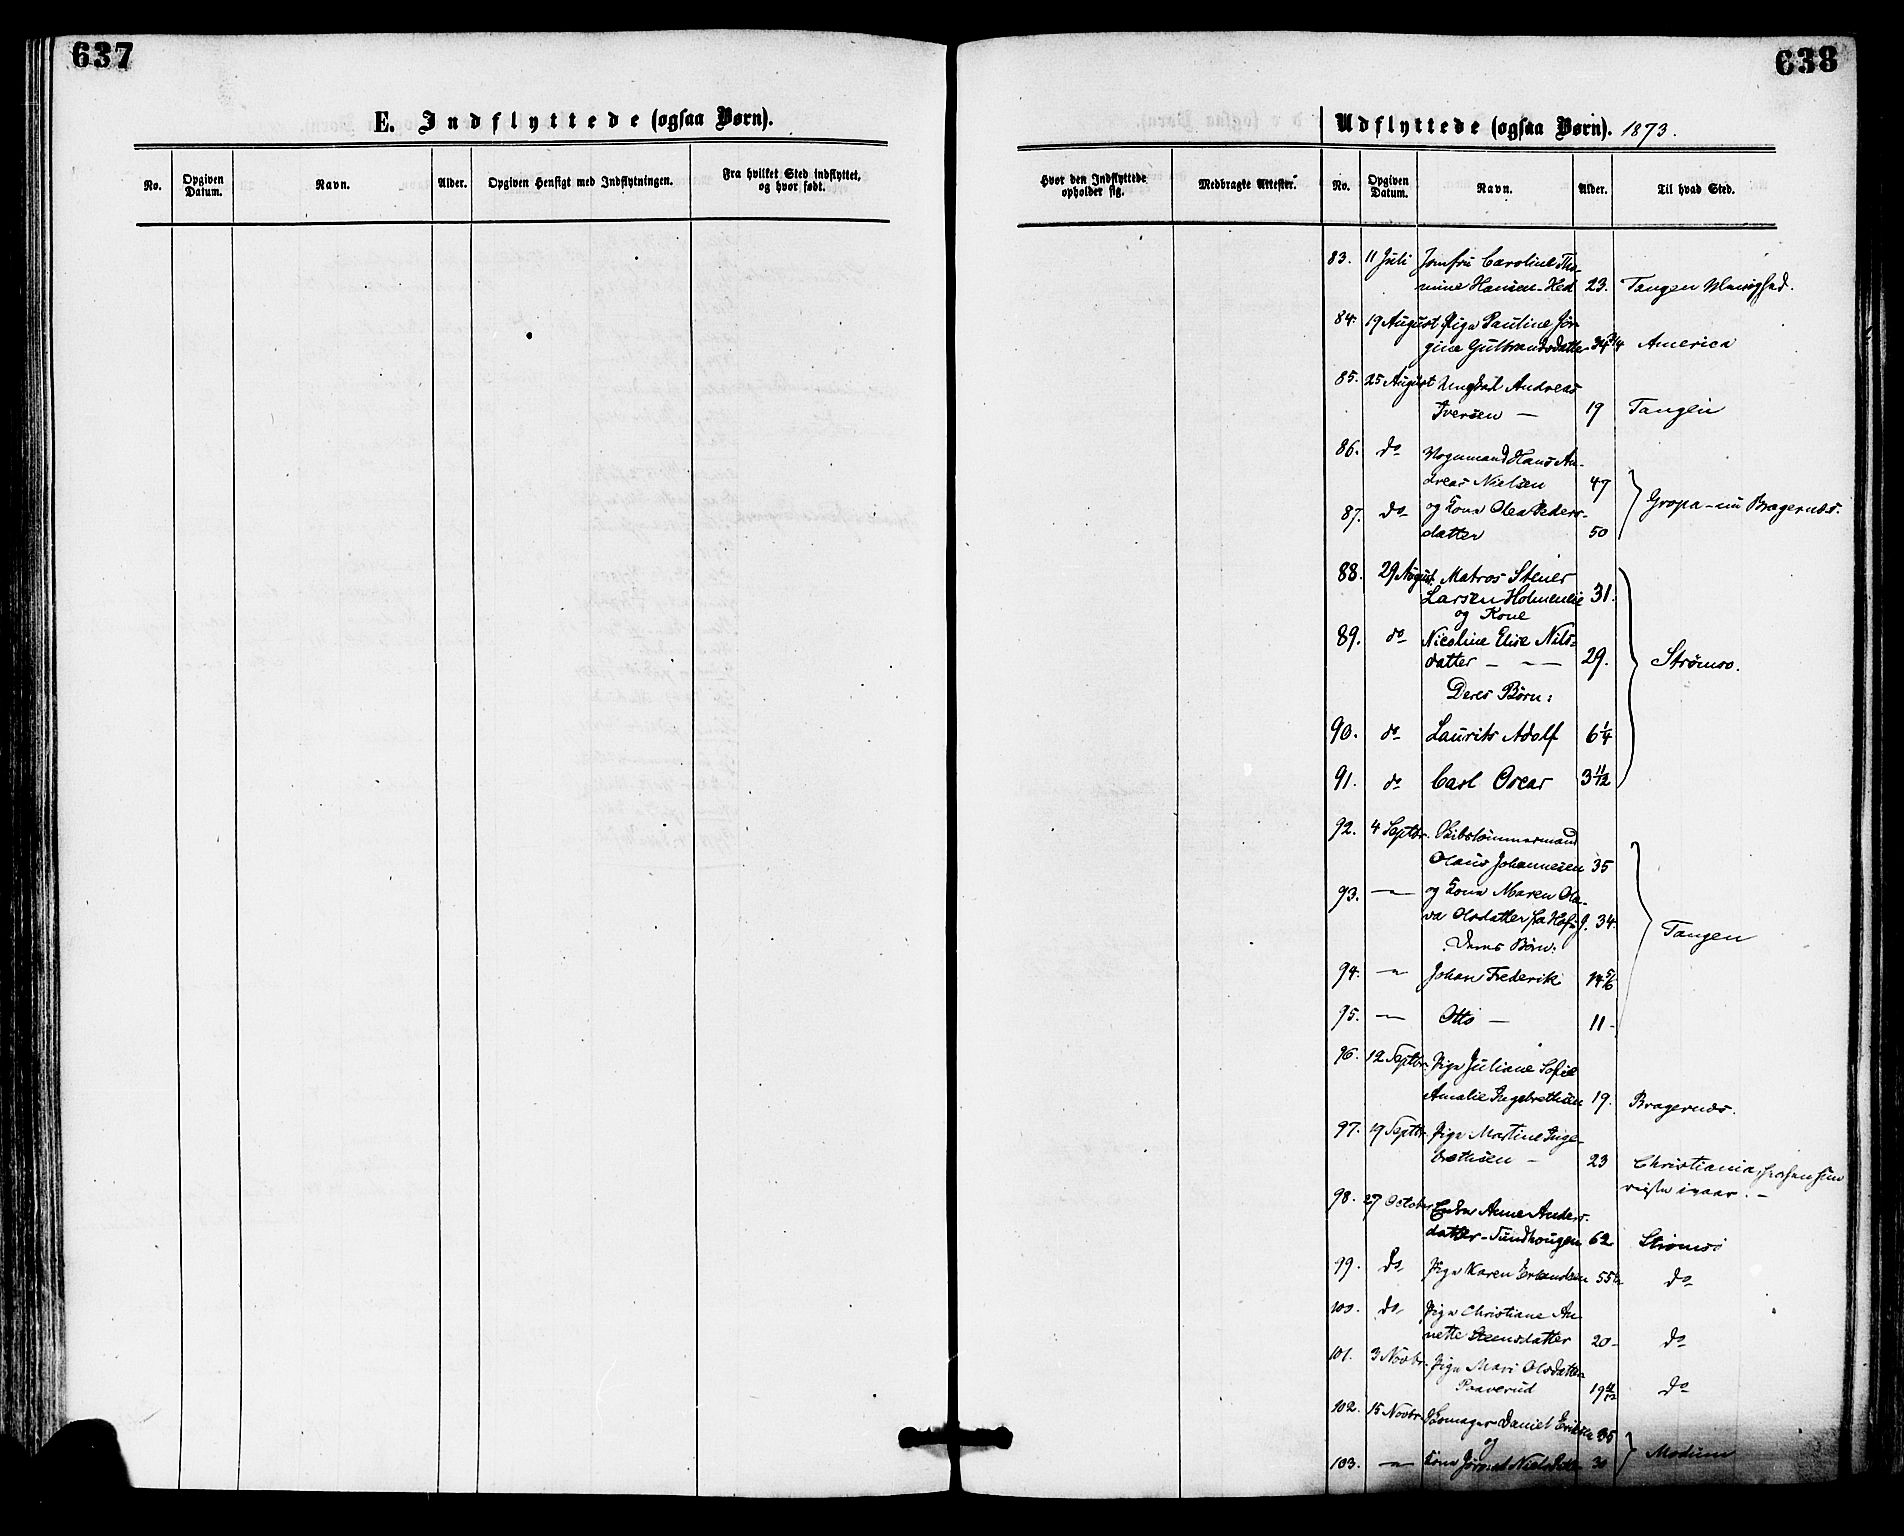 637
E. Indflyttede (ogsaa Børn).
No.
Opgiven
Datum.
Navn.
Alder.
Opgiven Hensigt med Indflytningen.
Fra hvilket Sted indflyttet,
og hvor født.
638
Udflyttede (ogsaa Børn). 1873.
Hvor den Indflyttede
opholder sig.
Medbragte Attester.
No.
Opgiven
Datum.
Navn.
Alder.
Til hvad Sted.
83. 11 Juli Jomfru Caroline Tho-
mine Hansen-Hed 23. Tangen
84. 19 August Pige Pauline Jør-
gine Gulbrandsdatter 34 3/4 America
85. 25 August Ungkarl Andreas
Iversen — 19 Tangen
86. do Vognmand Hans An-
dreas Nielsen 47
Gropa - nu Bragernæs.
87. do og Kone Olea Peders-
datter 50
88. 29 August. Matros Stener
Larsen Holmenlie 31.
og Kone
89. do Nicoline Elise Nils-
datter — — 29. Strømsø.
Deres Børn:
90. do Laurits Adolf 6 1/4
91. do Carl Oscar 3 11/12
92. 4 Septbr. Skibstømmermand
Olaus Johannesen 35
93. —"— og Kone Maren Ola-
va Olsdatter 34.
Tangen
Deres Børn:
94. —"— Johan Frederik 14 5/6
95. —"— Otto — 11 -
96. 12 Septbr. Pige Juliane Sofie
Amalie Ingebrethsen 19. Bragernæs.
97. 19 Septbr. Pige Martine Inge-
brethsen — 23 Christiania,
reiste ivaar. —
98. 27 October Enke Anne Anders-
datter - Sundhougen 62 Strømsø
99. do Pige Karen Erlandsen 55 do
100. do Pige Christiane An-
nette Steensdatter 20 - do
101. 3 Novbr. Pige Mari Olsdatter
Praverud 19 11/12 do
102. 15 Novbr. Skomager Daniel Eriksen 35
og
Modum
103. —"— Kone Nielsdatter 30